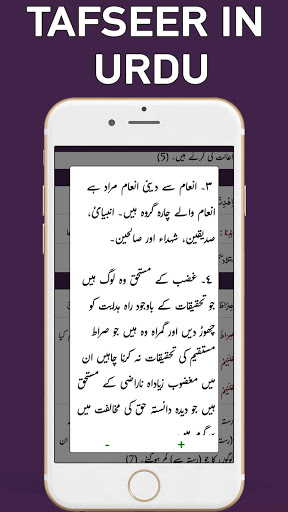 TAFSEER IN
URDU
اعانت کی کرتے ہیں۔ (5)
٣۔ انعام سے دینی انعام مراد ہے
انعام والے چارہ گروہ ہیں۔ انبیائ،
صدیقین، شہداء اور صالحین۔
٤۔ غضب کے مستحق وہ لوگ ہیں
جو تحقیقات کے باوجود راہ ہدایت کو
چھوڑ دیں اور گمراہ وہ ہیں جو صراط
مستقیم کی تحقیقات نہ کرنا چاہیں ان
میں مغضوب زیاداہ ناراضی کے مستحق
ہیں جو دیدہ دانستہ حق کی مخالفت میں
- +
لوگوں کا جو (رستہ سے) گم ہوگئے۔ (7)